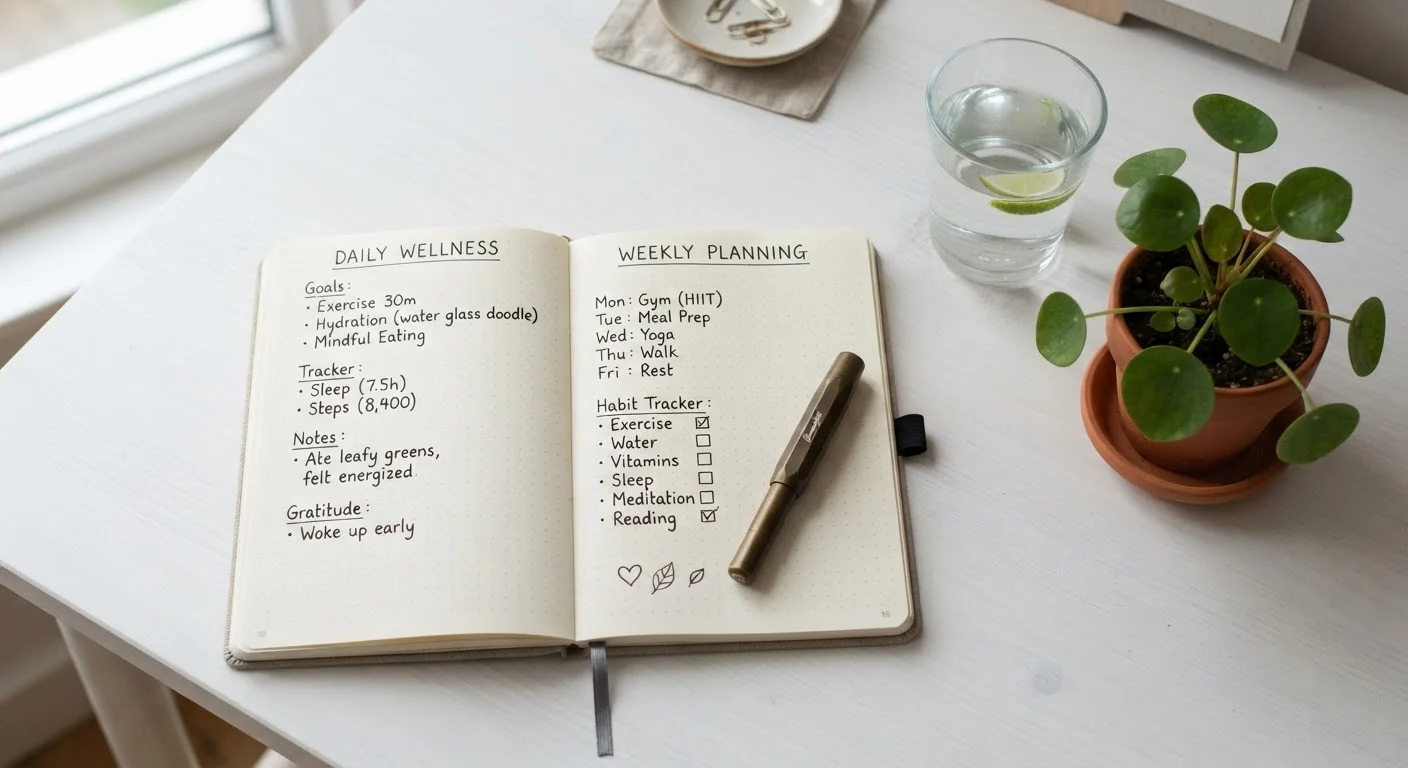 DAILY WELLNESS
Goals:
· Exercise 30m
· Hydration (water glass doodle)
· Mindful Eating
Tracker:
· Sleep (7.5h)
· Steps (8,400)
Notes:
· Ate leafy greens,
felt energized.
Gratitude:
· Woke up early
WEEKLY PLANNING
Mon: Gym (HIIT)
Tue: Meal Prep
Wed: Yoga
Thu: Walk
Fri: Rest
Habit Tracker:
· Exercise ☑
· Water ☐
· Vitamins ☐
· Sleep ☐
· Meditation ☐
· Reading ☑